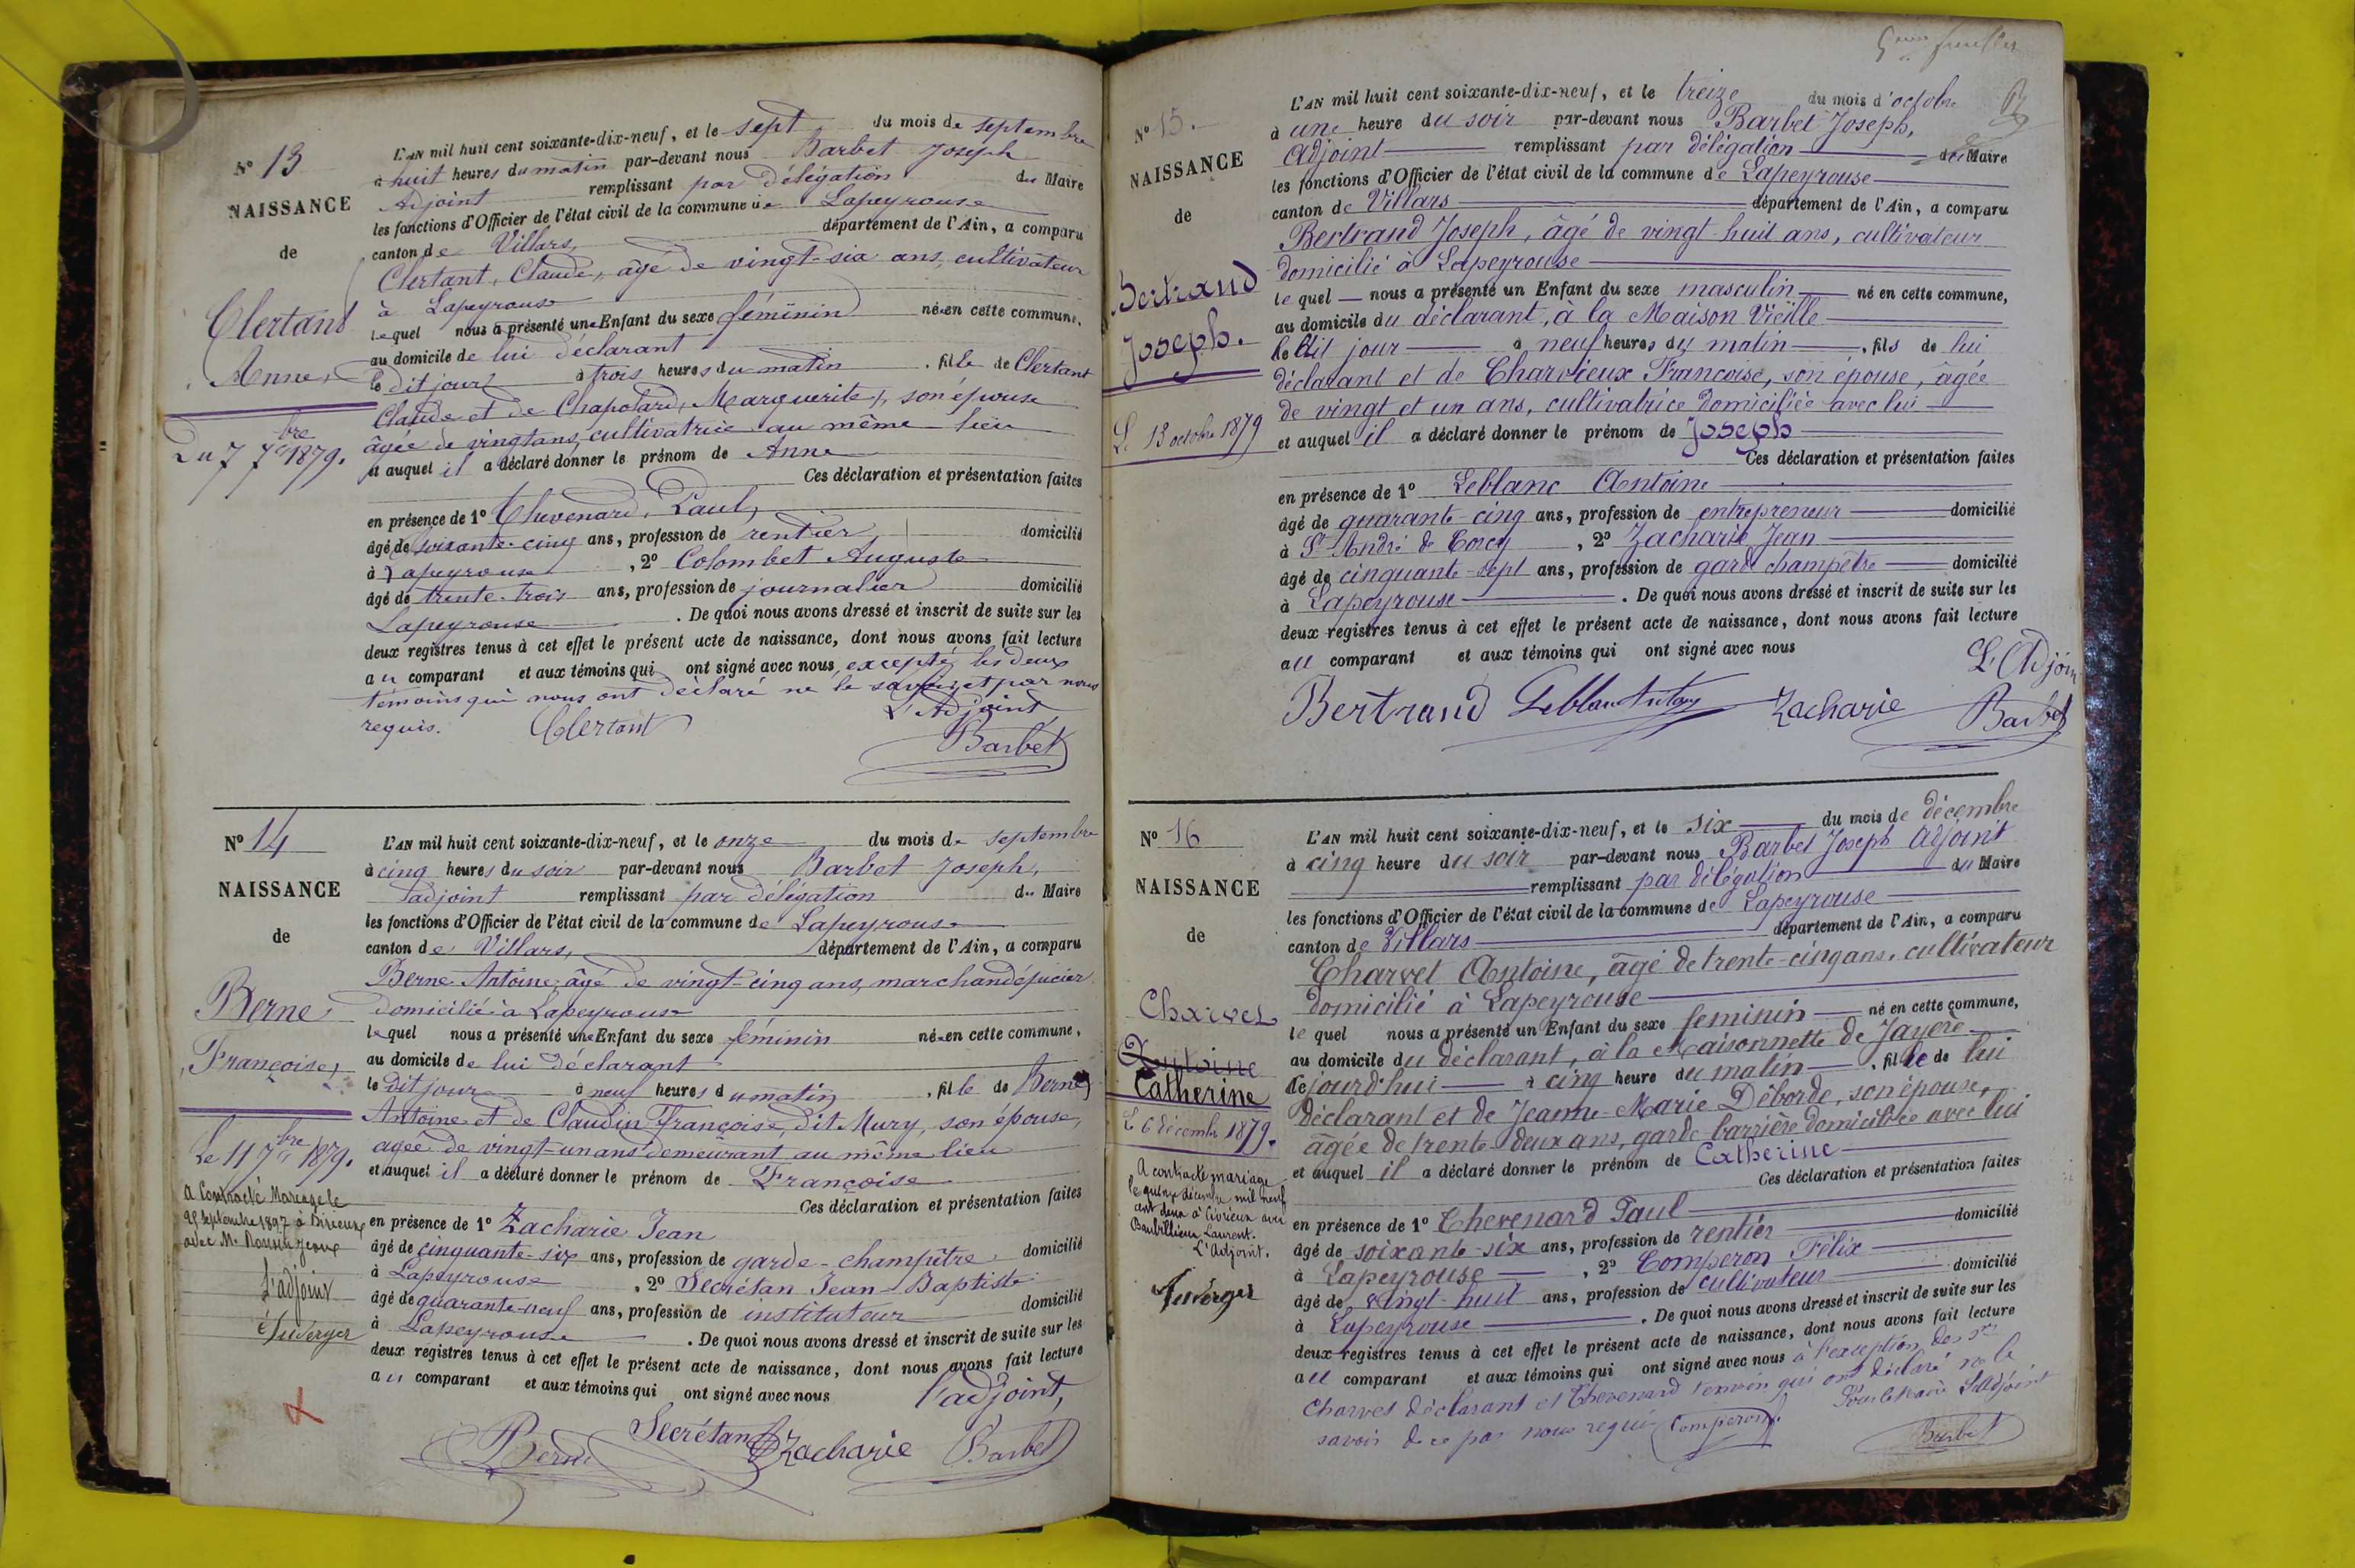 N° 13
NAISSANCE
de
Clertant
Anne
Du 7 7bre 1879.
L'AN mil huit cent soixante-dix-neuf, et le sept du mois de septembre
à huit heures du matin par-devant nous Barbet Joseph
Adjoint remplissant par délégation du Maire
les fonctions d'Officier de l'état civil de la commune de Lapeyrouse
canton de Villars, département de l'Ain, a comparu
Clertant, Claude, âgé de vingt-six ans, cultivateur
à Lapeyrouse
lequel nous a présenté une Enfant du sexe féminin née en cette commune,
au domicile de lui déclarant
le dit jour à trois heures du matin, fille de Clertant
Claude et de Chapolard, Marguerite, son épouse
âgée de vingt ans, cultivatrice au même lieu
et auquel il a déclaré donner le prénom de Anne
Ces déclaration et présentation faites
en présence de 1° Thevenard, Paul,
âgé de soixante-cinq ans, profession de rentier domicilié
à Lapeyrouse, 2° Colombet Auguste
âgé de trente-trois ans, profession de journalier domicilié
Lapeyrouse. De quoi nous avons dressé et inscrit de suite sur les
deux registres tenus à cet effet le présent acte de naissance, dont nous avons fait lecture
au comparant et aux témoins qui ont signé avec nous, excepté les deux
témoins qui nous ont déclaré ne le savoir et par nous
requis. Clertant L'Adjoint
Barbet
N° 14
NAISSANCE
de
Berne
Françoise,
Le 11 7bre 1879.
A Contracté Mariage le
septembre 1897 à Birieux
avec Mr
L'adjoint
Juverger
L'AN mil huit cent soixante-dix-neuf, et le onze du mois de septembre
à cinq heures du soir par-devant nous Barbet Joseph,
adjoint remplissant par délégation du Maire
les fonctions d'Officier de l'état civil de la commune de Lapeyrouse
canton de Villars, département de l'Ain, a comparu
Berne Antoine, âgé de vingt-cinq ans, marchand épicier
domicilié à Lapeyrouse
lequel nous a présenté une Enfant du sexe féminin née en cette commune,
au domicile de lui déclarant
le dit jour à neuf heures du matin, fille de Berne
Antoine et de Claudin Françoise, dit Mury, son épouse,
agée de vingt-un ans demeurant au même lieu
et auquel il a déclaré donner le prénom de Françoise
Ces déclaration et présentation faites
en présence de 1° Zacharie Jean
âgé de cinquante-six ans, profession de garde-champêtre domicilié
à Lapeyrouse, 2° Secrétan Jean-Baptiste
âgé de quarante-neuf ans, profession de instituteur domicilié
à Lapeyrouse. De quoi nous avons dressé et inscrit de suite sur les
deux registres tenus à cet effet le présent acte de naissance, dont nous avons fait lecture
au comparant et aux témoins qui ont signé avec nous l'adjoint,
Berne Secrétan Zacharie Barbet
5ème feuillet
N° 15.
NAISSANCE
de
Bertrand
Joseph.
Le 13 octobre 1879
L'AN mil huit cent soixante-dix-neuf, et le treize du mois d'octobre
à une heure du soir par-devant nous Barbet Joseph,
Adjoint remplissant par délégation du Maire
les fonctions d'Officier de l'état civil de la commune de Lapeyrouse
canton de Villars département de l'Ain, a comparu
Bertrand Joseph, âgé de vingt-huit ans, cultivateur
domicilié à Lapeyrouse
lequel nous a présenté un Enfant du sexe masculin né en cette commune,
au domicile du déclarant, à la Maison Vieille
le dit jour à neuf heures du matin, fils de lui
déclarant et de Charvieux Françoise, son épouse, âgée
de vingt et un ans, cultivatrice domiciliée avec lui
et auquel il a déclaré donner le prénom de Joseph
Ces déclaration et présentation faites
en présence de 1° Leblanc Antoine
âgé de quarante-cinq ans, profession de entrepreneur domicilié
à St André de Corcy, 2° Zacharie Jean
âgé de cinquante-sept ans, profession de garde champêtre domicilié
à Lapeyrouse. De quoi nous avons dressé et inscrit de suite sur les
deux registres tenus à cet effet le présent acte de naissance, dont nous avons fait lecture
au comparant et aux témoins qui ont signé avec nous
L'Adjoin
Bertrand Leblanc Zacharie Barbet
N° 16
NAISSANCE
de
Charvet
Antoine
Catherine
Le 6 décembre 1879.
A contracté mariage
le quinze décembre mil neuf
cent deux à Civrieux avec
Laurent.
L'Adjoint.
Juverger
L'AN mil huit cent soixante-dix-neuf, et le six du mois de décembre
à cinq heure du soir par-devant nous Barbet Joseph Adjoint
remplissant par délégation du Maire
les fonctions d'Officier de l'état civil de la commune de Lapeyrouse
canton de Villars département de l'Ain, a comparu
Charvet Antoine, âgé de trente-cinq ans, cultivateur
domicilié à Lapeyrouse
lequel nous a présenté un Enfant du sexe feminin né en cette commune,
au domicile du déclarant, à la Maisonnette de Jayere
Cejourd'hui à cinq heure du matin, fille de lui
déclarant et de Jeanne-Marie Déborde, son épouse,
âgée de trente-deux ans, garde-barrière domiciliée avec lui
et auquel il a déclaré donner le prénom de Catherine
Ces déclaration et présentation faites
en présence de 1° Thevenard Paul
âgé de soixante-six ans, profession de rentier domicilié
à Lapeyrouse, 2° Comperon Félix
âgé de vingt-huit ans, profession de cultivateur domicilié
à Lapeyrouse. De quoi nous avons dressé et inscrit de suite sur les
deux registres tenus à cet effet le présent acte de naissance, dont nous avons fait lecture
au comparant et aux témoins qui ont signé avec nous à l'exception des srs
Charvet déclarant et Thevenard temoin qui ont déclaré ne le
savoir de ce par nous requis Comperon Pour le Maire L'Adjoint
Barbet